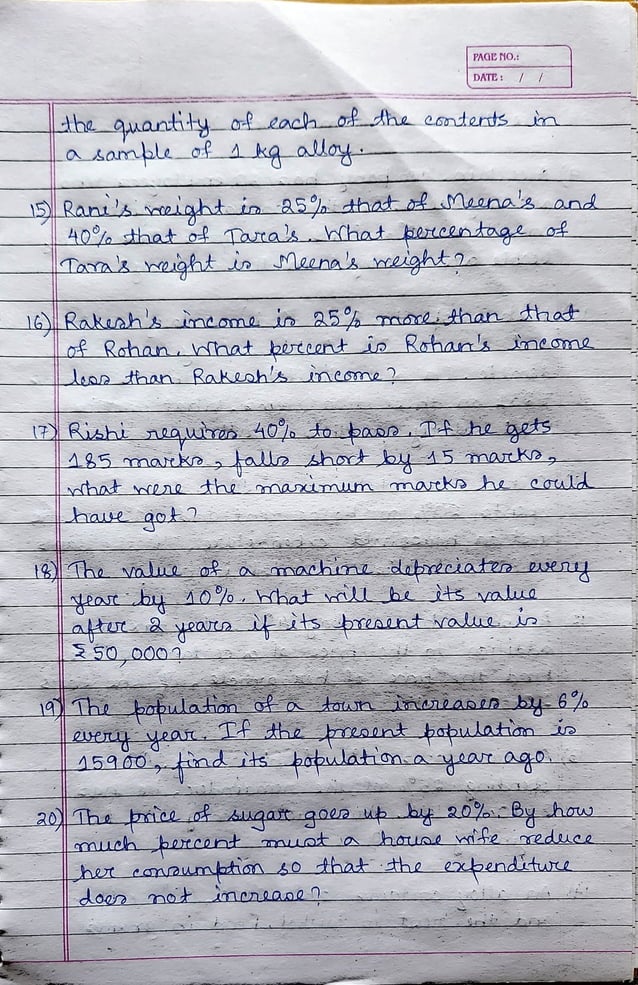 PAGE NO.:
DATE: / /
the quantity of each of the contents in
a sample of 1 kg alloy.
15) Rani's weight is 25% that of Meena's and
40% that of Tara's. What percentage of
Tara's weight is Meena's weight?
16) Rakesh's income is 25% more than that
of Rohan. What percent is Rohan's income
less than Rakesh's income?
17) Rishi requires 40% to pass. If he gets
185 marks, falls short by 15 marks,
what were the maximum marks he could
have got?
18) The value of a machine depreciates every
year by 10%. What will be its value
after 2 years if its present value is
₹50,000?
19) The population of a town increases by 6%
every year. If the present population is
15900, find its population a year ago.
20) The price of sugar goes up by 20%. By how
much percent must a house wife reduce
her consumption so that the expenditure
does not increase?